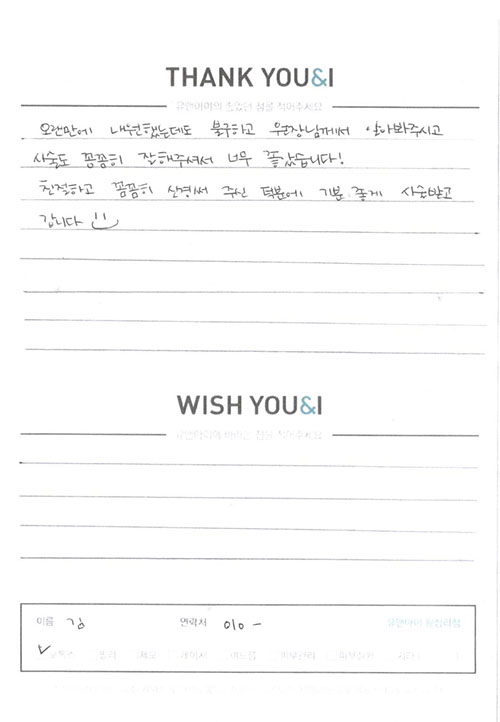 THANK YOU&I
유앤아이의 좋았던 점을 적어주세요
오랜만에 내원했는데도 불구하고 원장님께서 알아봐주시고
시술도 꼼꼼히 잘해주셔서 너무 좋았습니다!
친절하고 꼼꼼히 신경써 주신 덕분에 기분 좋게 시술받고
갑니다
WISH YOU&I
유앤아이에 바라는 점을 적어주세요
이름 김 연락처 010 - 유앤아이 왕십리점
✓ 보톡스 필러 제모 레이저 여드름 피부관리